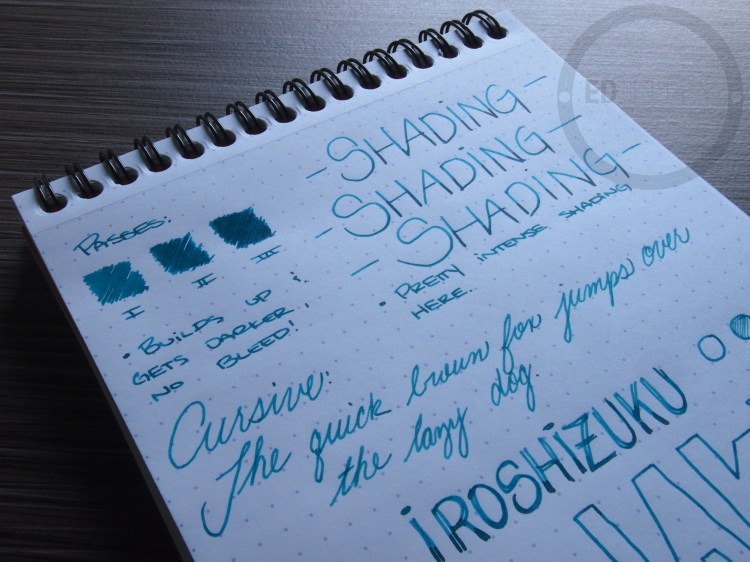 - SHADING -
- SHADING -
- SHADING -
• PRETTY INTENSE SHADING
HERE.
PASSES:
I II III
• BUILDS UP &
GETS DARKER,
NO BLEED!
Cursive:
The quick brown fox jumps over
the lazy dog.
iROSHiZUKU
ED